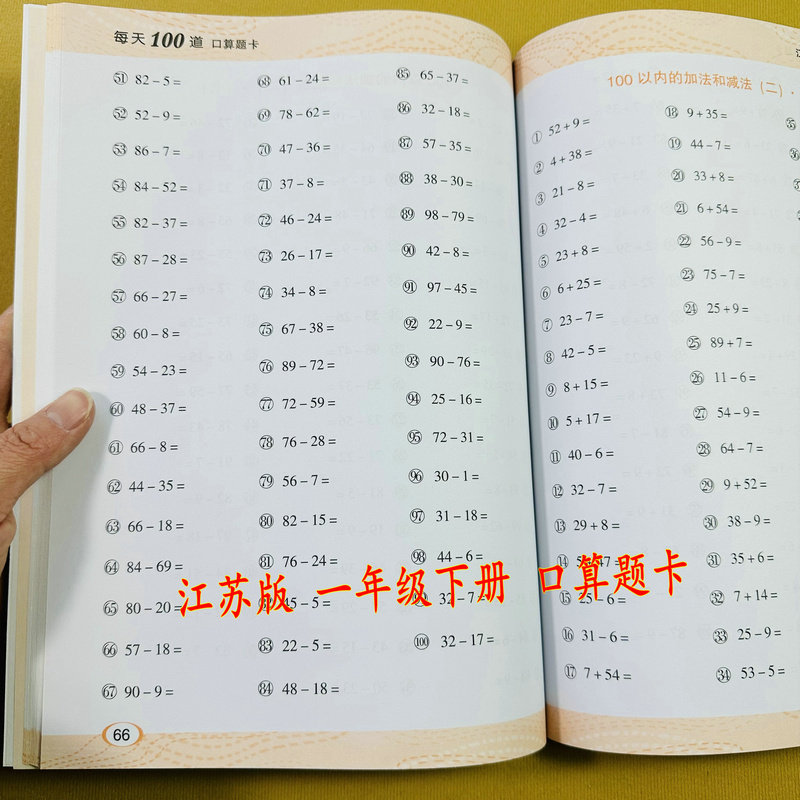 每天100道 口算题卡
51 82-5=
52 52-9=
53 86-7=
54 84-52=
55 82-37=
56 87-28=
57 66-27=
58 60-8=
59 54-23=
60 48-37=
61 66-8=
62 44-35=
63 66-18=
64 84-69=
65 80-20=
66 57-18=
67 90-9=
68 61-24=
69 78-62=
70 47-36=
71 37-8=
72 46-24=
73 26-17=
74 34-8=
75 67-38=
76 89-72=
77 72-59=
78 76-28=
79 56-7=
80 82-15=
81 76-24=
45-5=
83 22-5=
84 48-18=
85 65-37=
86 32-18=
87 57-35=
88 38-30=
89 98-79=
90 42-8=
91 97-45=
92 22-9=
93 90-76=
94 25-16=
95 72-31=
96 30-1=
97 31-18=
98 44-6=
32-7=
100 32-17=
66
100以内的加法和减法(二)·
① 52+9=
② 4+38=
③ 21-8=
④ 32-4=
⑤ 23+8=
⑥ 6+25=
⑦ 23-7=
⑧ 42-5=
⑨ 8+15=
⑩ 5+17=
⑪ 40-6=
⑫ 32-7=
⑬ 29+8=
⑭ 47=
⑮ 25-6=
⑯ 31-6=
⑰ 7+54=
⑱ 9+35=
⑲ 44-7=
⑳ 33+8=
21 6+54=
22 56-9=
23 75-7=
24 25+9=
25 89+7=
26 11-6=
27 54-9=
28 64-7=
29 9+52=
30 38-9=
31 35+6=
32 7+14=
33 25-9=
34 53-5=
35
36
江苏版 一年级下册 口算题卡